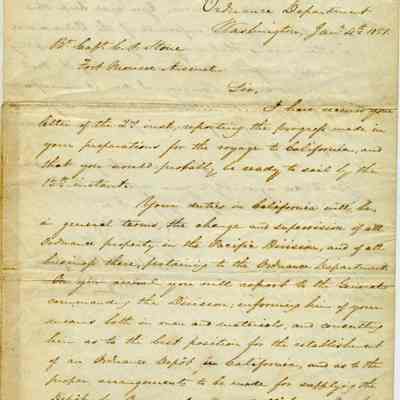 Ordnance Department
Washington, Jany 4th 1851.
Bt Capt. C. P. Stone
Fort Monroe Arsenal
Sir,
I have received your
letter of the 2d inst, reporting the progress made in
your preparations for the voyage to California, and
that you would probably be ready to sail by the
15th instant.
Your duties in California will be,
in general terms, the charge and supervision of all
Ordnance property, in the Pacific Division, and of all
business there, pertaining to the Ordnance Department.
On your arrival you will report to the General
commanding the Division, informing him of your
means both in men and materials, and consulting
him as to the best position for the establishment
of an Ordnance Depôt in California, and as to the
proper arrangements to be made for supplying the